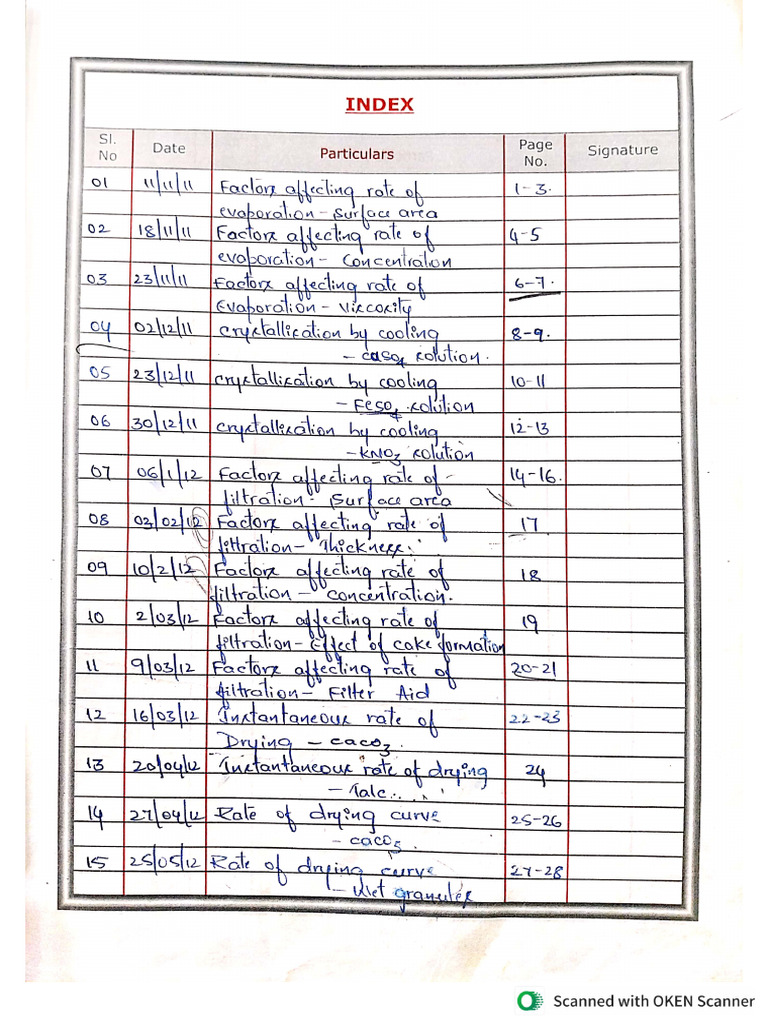 INDEX
Sl. No Date Particulars Page No. Signature
01 11/11/11 Factors affecting rate of 1-3.
evaporation - Surface area
02 18/11/11 Factors affecting rate of 4-5
evaporation - Concentration
03 23/11/11 Factors affecting rate of 6-7.
Evaporation - Viscosity
04 02/12/11 Crystallisation by cooling 8-9.
- CuSO4 solution.
05 23/12/11 Crystallisation by cooling 10-11
- FeSO4 solution
06 30/12/11 Crystallisation by cooling 12-13
- KNO3 solution
07 06/1/12 Factors affecting rate of - 14-16.
filtration - Surface area
08 03/02/12 Factors affecting rate of 17
filtration - Thickness.
09 10/2/12 Factors affecting rate of 18
filtration - concentration.
10 2/03/12 Factors affecting rate of 19
filtration - Effect of cake formation
11 9/03/12 Factors affecting rate of 20-21
filtration - Filter Aid
12 16/03/12 Instantaneous rate of 22-23
Drying - CaCO3.
13 20/04/12 Instantaneous rate of drying 24
- Talc.
14 27/04/12 Rate of drying curve 25-26
- CaCO3.
15 25/05/12 Rate of drying curve 27-28
- Wet granules
Scanned with OKEN Scanner